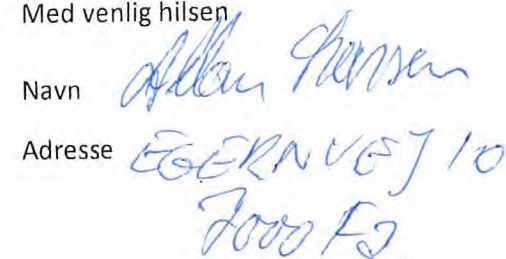 Med venlig hilsen
Navn Allan Hansen
Adresse EGERNVEJ 10
7000 Fa